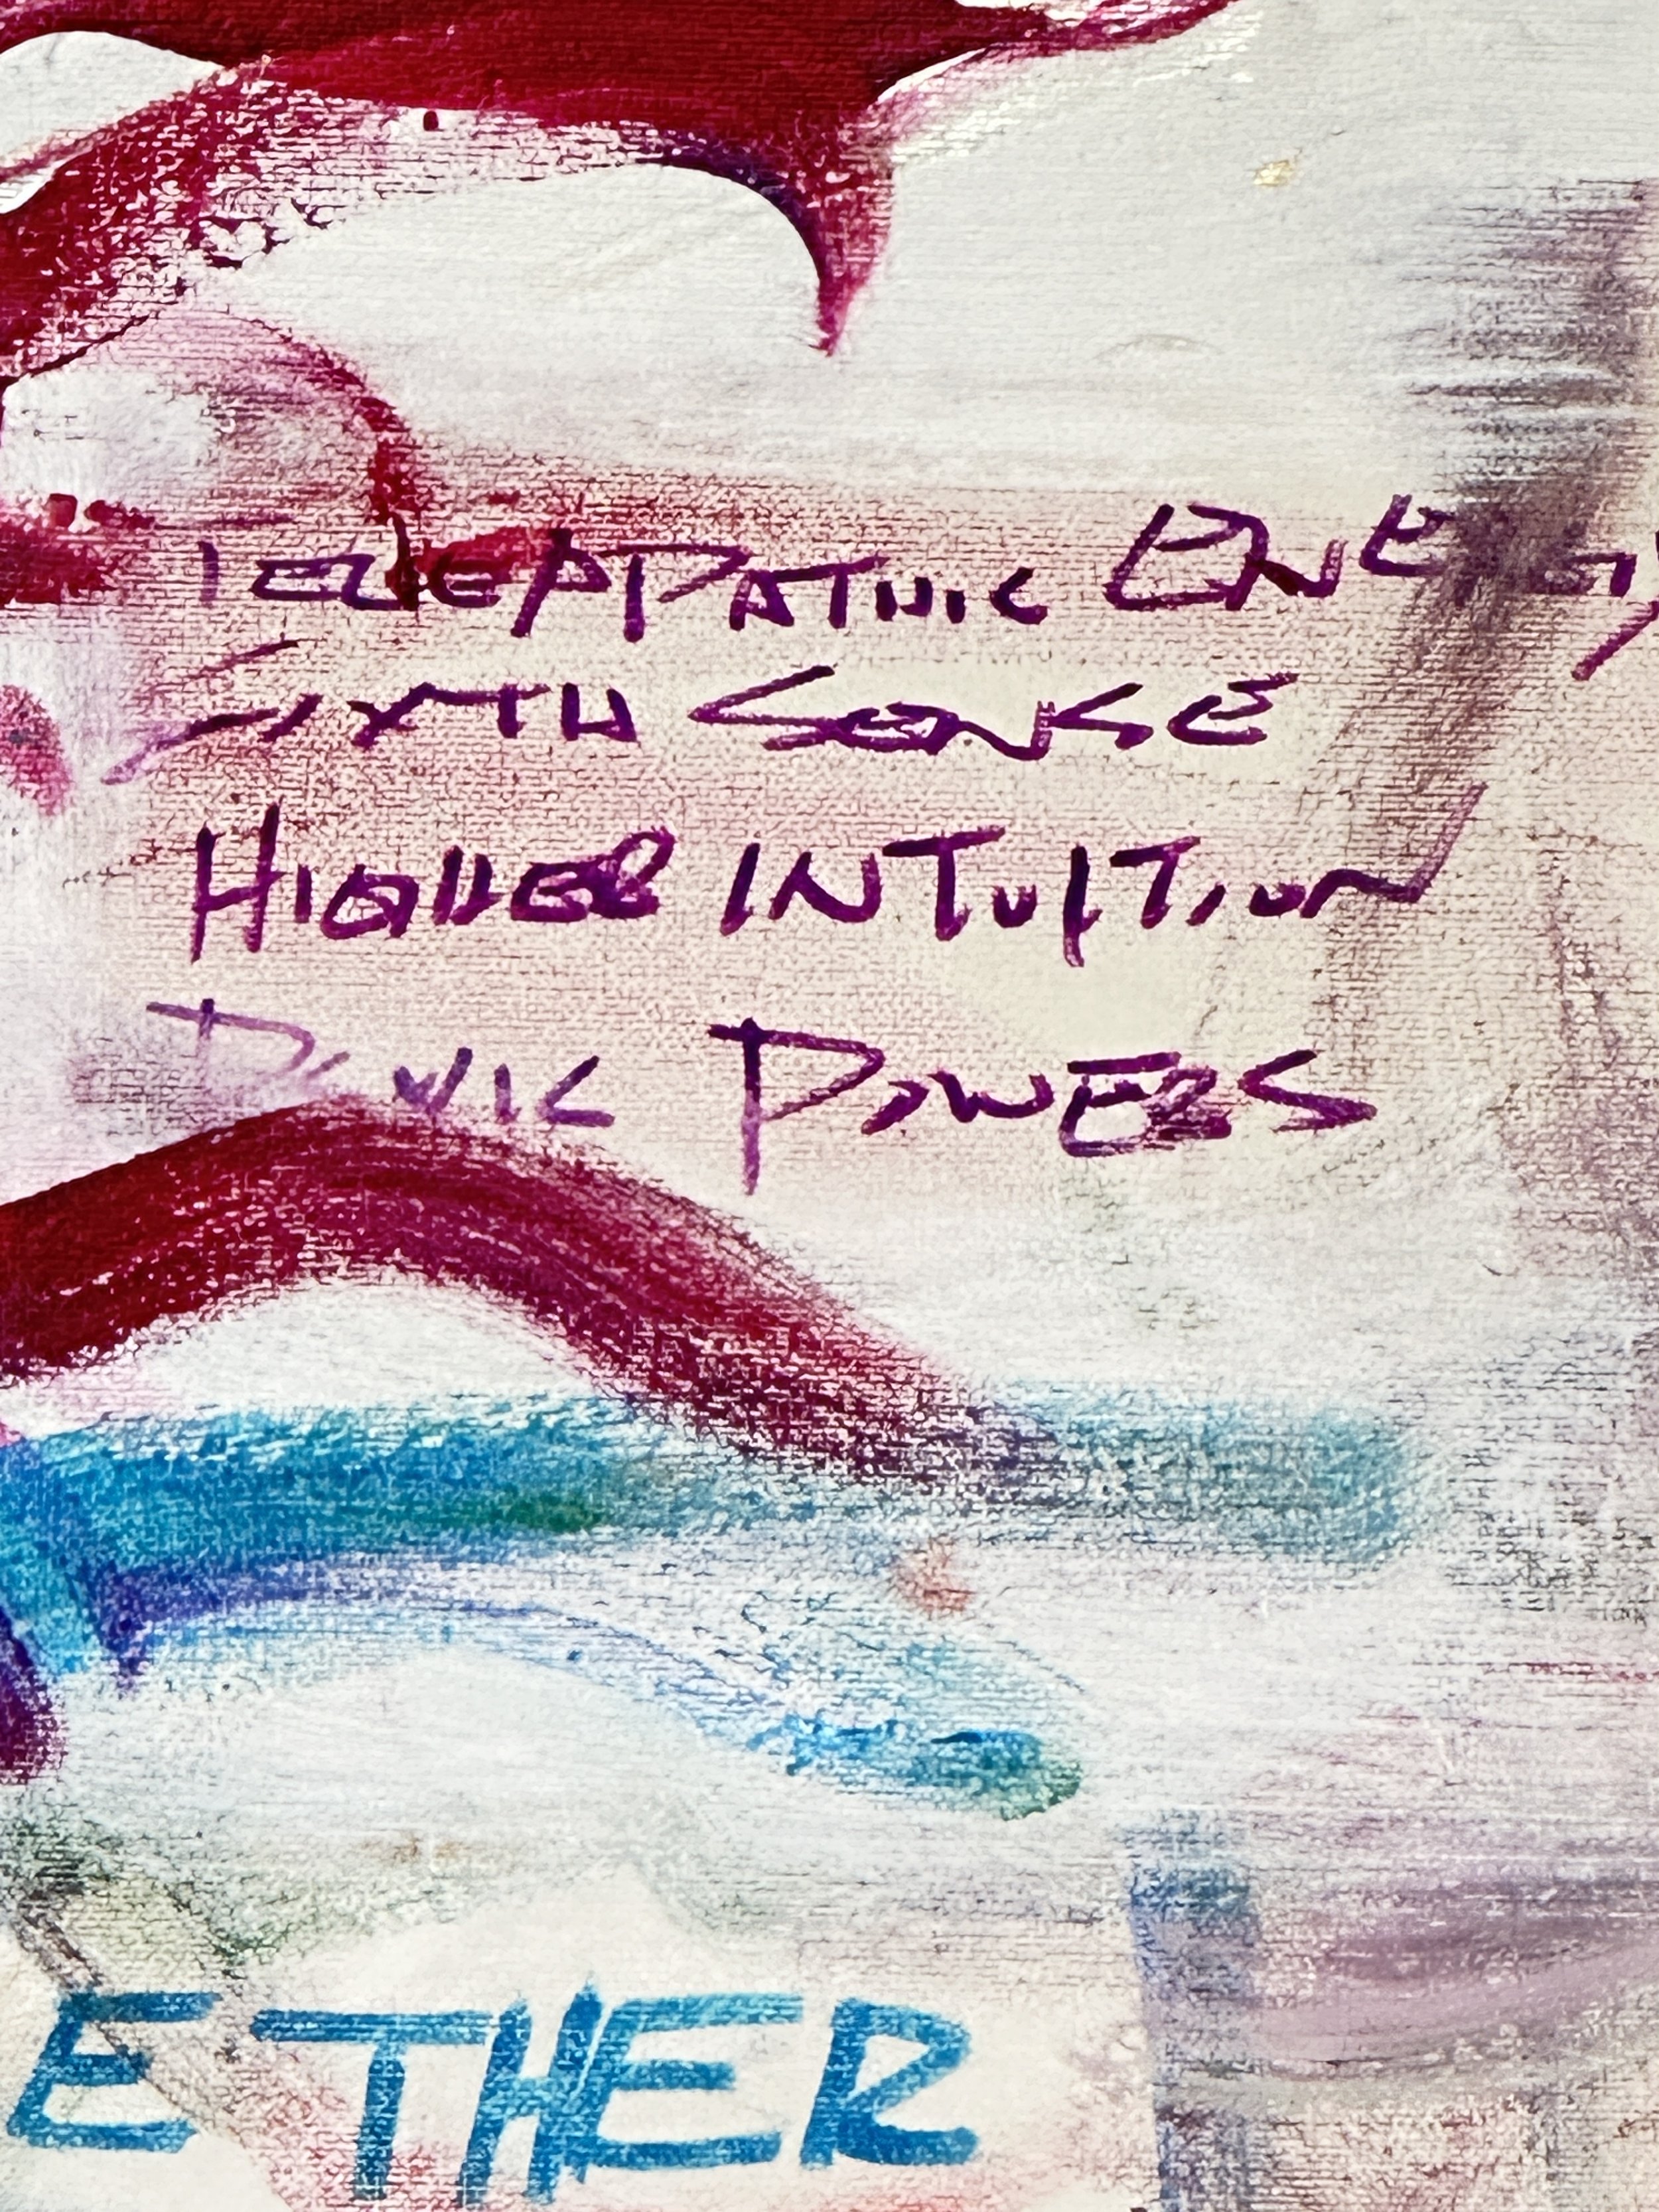 TELEPPATHIC ENERGY
SIXTH SENSE
HIGHER INTUITION
POWERS
ETHER